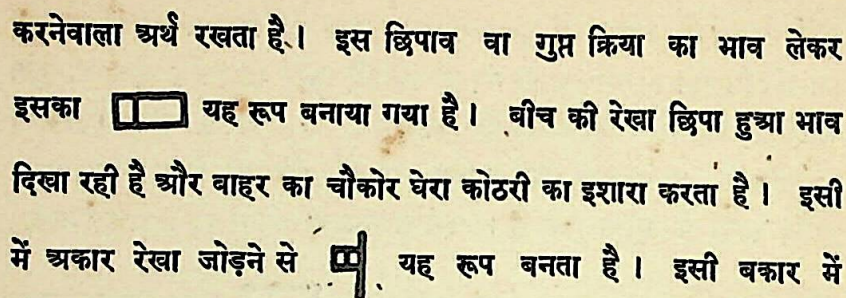 करनेवाला अर्थ रखता है। इस छिपाव वा गुप्त क्रिया का भाव लेकर
इसका यह रूप बनाया गया है। बीच की रेखा छिपा हुआ भाव
दिखा रही है और बाहर का चौकोर घेरा कोठरी का इशारा करता है। इसी
में अकार रेखा जोड़ने से यह रूप बनता है। इसी बकार में